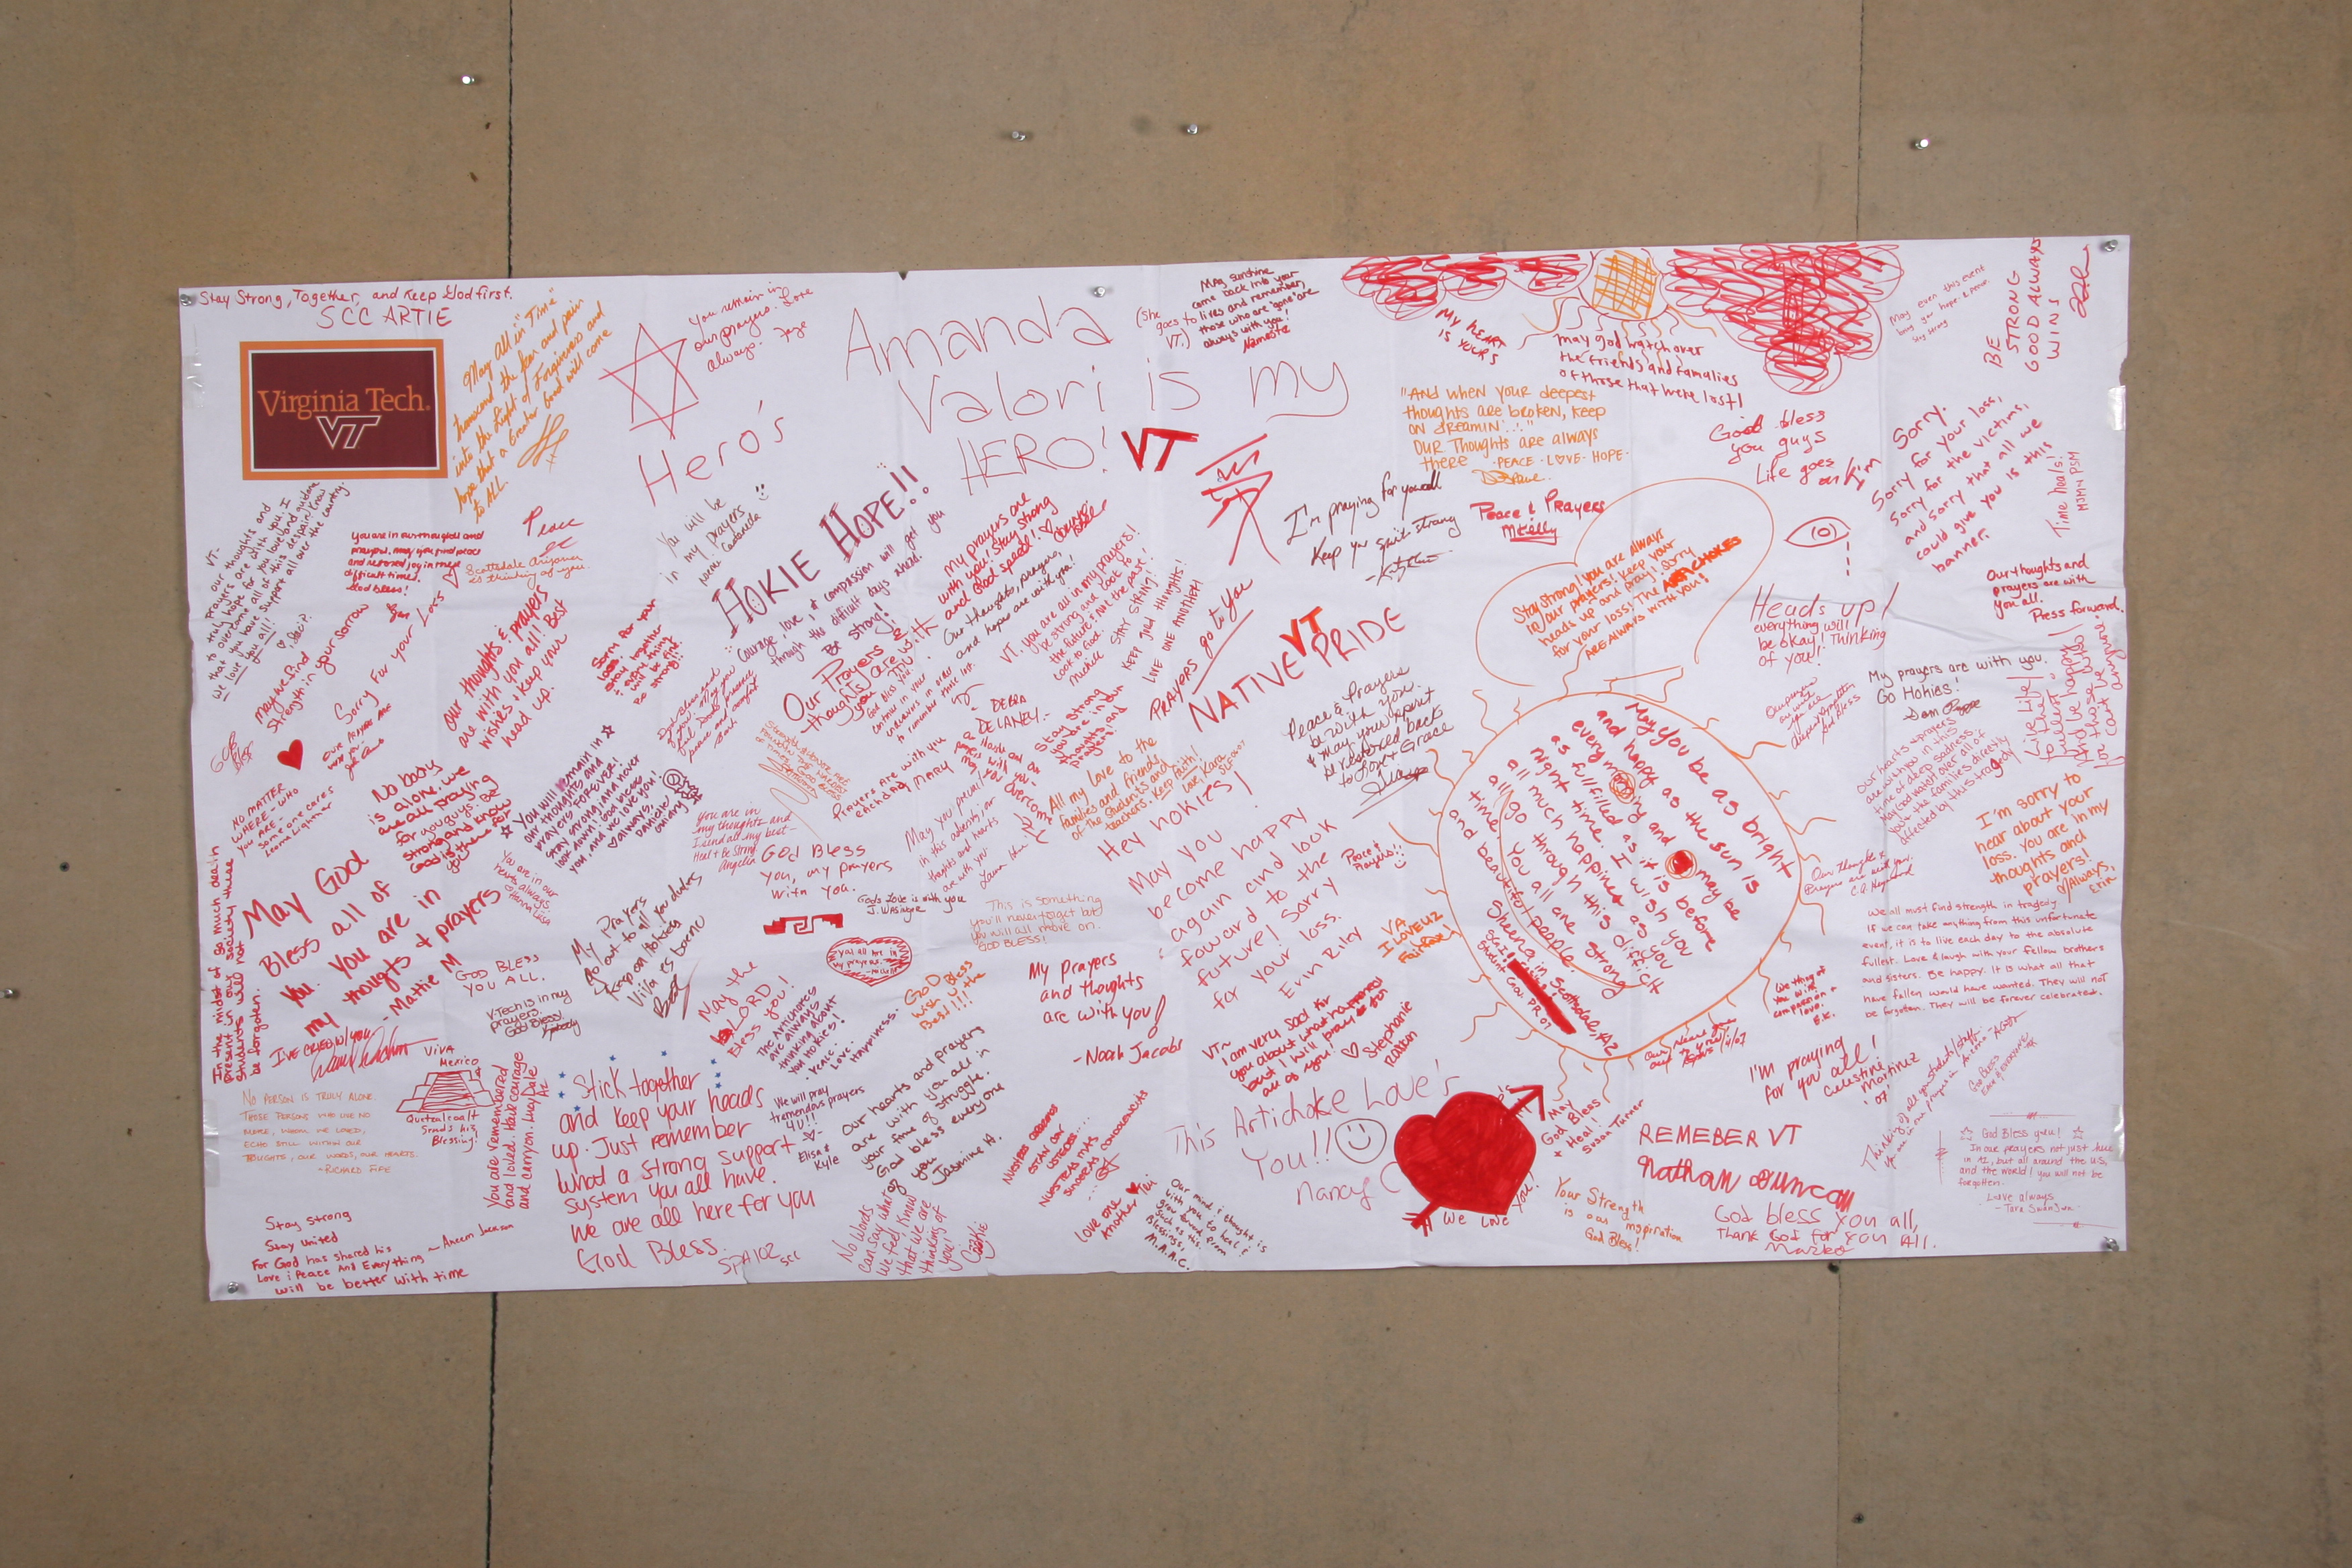 Stay Strong, Together, and Keep God first.
SCC ARTIE
Virginia Tech
VT
"May all in Time"
transcend the fear and pain
into the light of Forgiveness and
hope that a Greater Good will come
to ALL
You remain in
our prayers. Love
always. Faye
Hero's
Amanda
Valori is my
HERO!
VT
(She
goes to
VT.)
May sunshine
come back into your
lives and remember,
those who are "gone" are
always with you!
Namaste
愛
My heart
is yours
may god watch over
the friends and families
of those that were lost!
"And when your deepest
thoughts are broken, keep
on dreamin'..."
Our thoughts are always
there
·PEACE·LOVE·HOPE·
May even this event
bring you hope & peace.
Stay strong
BE
STRONG
GOOD ALWAYS
WINS
God bless
you guys
Life goes
on Kim
Sorry.
Sorry for your loss,
sorry for the victims,
and sorry that all we
could give you is this
banner.
Time heals!
MJMN PSM
VT-
our thoughts and
prayers are with you. I
truly hope for your love and guidance
to overcome all of this despair. Know
that you have support all over the country.
we love you all!
You are in our thoughts and
prayers, may you find peace
and restored joy in these
difficult times.
God bless!
Peace
Scottsdale Arizona
is thinking of you.
You will be
in my prayers
HOKIE HOPE!!
Courage, love, & compassion will get you
through the difficult days ahead.
Be strong!
My prayers are
with you! Stay strong
and God speed!
Our thoughts, prayers,
and hopes are with you!
VT, you are all in my prayers!
be strong and look to
the future & not the past!
Look to God.
STAY STRONG!
KEEP GOOD THOUGHTS!
LOVE ONE ANOTHER!
I'm praying for you all
Keep your spirit strong
Peace & Prayers
McElly
Stay strong! you are always
in our prayers! Keep your
heads up and pray! Sorry
for your loss! The ARTICHOKES
ARE ALWAYS WITH YOU!
Heads up!
everything will
be okay! Thinking
of you!
Our thoughts and
prayers are with
you all.
Press forward.
Maybe find
Strength in your sorrow
Sorry For your Loss
our thoughts &
prayers
are with you all! Best
wishes & keep your
head up.
Sorry for your
loss.
stay together
& everything
will be fine
Be strong!!
Our Prayers &
thoughts are with
you
God bless you
Prayers go to you
NATIVE VT PRIDE
Peace & Prayers
be with you.
& may your spirit
be restored back
to Love & Grace
My prayers are with you.
Go Hokies!
Live Life
to the
fullest
and be happy
for those who
can't be anymore.
God
Bless
NO MATTER
WHERE - WHO
YOU ARE -
Someone cares
No body
is alone, we
are all praying
for you guys. Be
strong and know
God is there for
you
You will remain in
our thoughts and
prayers FOREVER!
Stay strong, and never
look down! God bless
you, and we love you!
always,
Danielle
You are in
my thoughts and
I send all my best-
Heal & Be Strong
Angelia
DEBRA
DELANEY
Prayers are with you
MARY
Stay strong
You are in our
thoughts and
prayers!
All my love to the
families and friends
of the students and
teachers. Keep faith!
Love, Kara
Hey hokies!
May you
become happy
again and look
foward to the
future! Sorry
for your loss.
Erin Riley
Peace &
Prayers!!
May you be as bright
and happy as the sun is
every morning and may be
as fulfilled as it is before
night time. I wish you
all much happiness as you
all go through this difficult
time. You all are strong
and beautiful people.
Sheena in Scottsdale, AZ
Our hearts & prayers
are with you in this
time of deep sadness.
May God watch over all of
the families directly
affected by this tragedy
I'm sorry to
hear about your
loss. You are in my
thoughts and
prayers!
Always,
Erin
Our thoughts &
Prayers are with you.
We all must find strength in tragedy.
If we can take anything from this unfortunate
event, it is to live each day to the absolute
fullest. Love & laugh with your fellow brothers
and sisters. Be happy. It is what all that
have fallen would have wanted. They will not
be forgotten. They will be forever celebrated.
In the midst of so much death
present in our society these
students will not
be forgotten.
May God
Bless all of
you. You are in
my thougts & prayers
- Mattie M
I've cried w/ you
You are in our
hearts always
God Bless
you all.
V-Tech is in my
prayers.
God Bless.
My Prayers
go out to all you dudes
Keep on Hokies
God Bless
You, my prayers
with you.
God's Love is with you
You all are in
my prayers.
This is something
you'll never forget but
you will all move on.
GOD BLESS!
May the
LORD
Bless you!
The Artichokes
are always
thinking about
you Hokies!
·Peace·
Love·
Happiness·
GOD Bless
Wish the
Best!!!!
My prayers
and thoughts
are with you!
-Noah Jacobs
VA
I LOVE UZ
Fairfax!
VT~
I am very sad for
you about what happened
but I will pray for
all of you!
Stephanie
I'm praying
for you all!
Celestine
Martinez
'07
Viva
Mexico
Quetzalcoalt
Sends his
Blessing!
No person is truly alone.
Those persons who live no
more, whom we loved,
echo still within our
thoughts, our words, our hearts.
~Richard Fife
You are remembered
and loved. Have courage
and carry on. Lucy Dale
AZ
Stick together
and keep your heads
up. Just remember
what a strong support
system you all have.
We are all here for you
God Bless.
SPA 102
SCC
We will pray
tremendous prayers
4 U!!!
Elisa &
Kyle
Our hearts and prayers
are with you all in
your time of struggle.
God bless everyone
of you
Jasmine A.
No words
can say what
we feel, know
that we are
thinking of
you!
Cookie
Nuestros corazones
estan con
ustedes....
Nuestras mas
sinceras condolencias
Love one
Another
Our mind & thought is
with you to heal &
grow forward from
such as this.
Blessings,
M.A.A.C.
This Artichoke Love's
You!!
Nancy C
We Love You!
May
God Bless
& Heal!
Susan Turner
Your Strength
is our inspiration
God Bless!
REMEBER VT
Nathan Duncan
God bless you all,
Thank God for you All.
God Bless you!
In our prayers not just here
in AZ, but all around the U.S.,
and the world! you will not be
forgotten.
Love always
Stay strong
Stay united
For God has shared his
Love & Peace And Everything
will be better with time